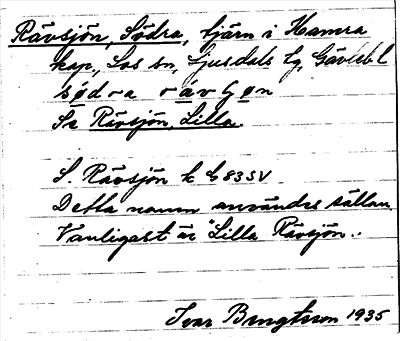 Rävsjön, Södra, tjärn i Hamra
kap., Los sn, Ljusdals tg, Gävlebl
södra
Se Rävsjön, Lilla.
S. Rävsjön k 83SV
Detta namn användes sällan.
Vanligast är "Lilla Rävsjön".
Ivar Bengtsson 1935